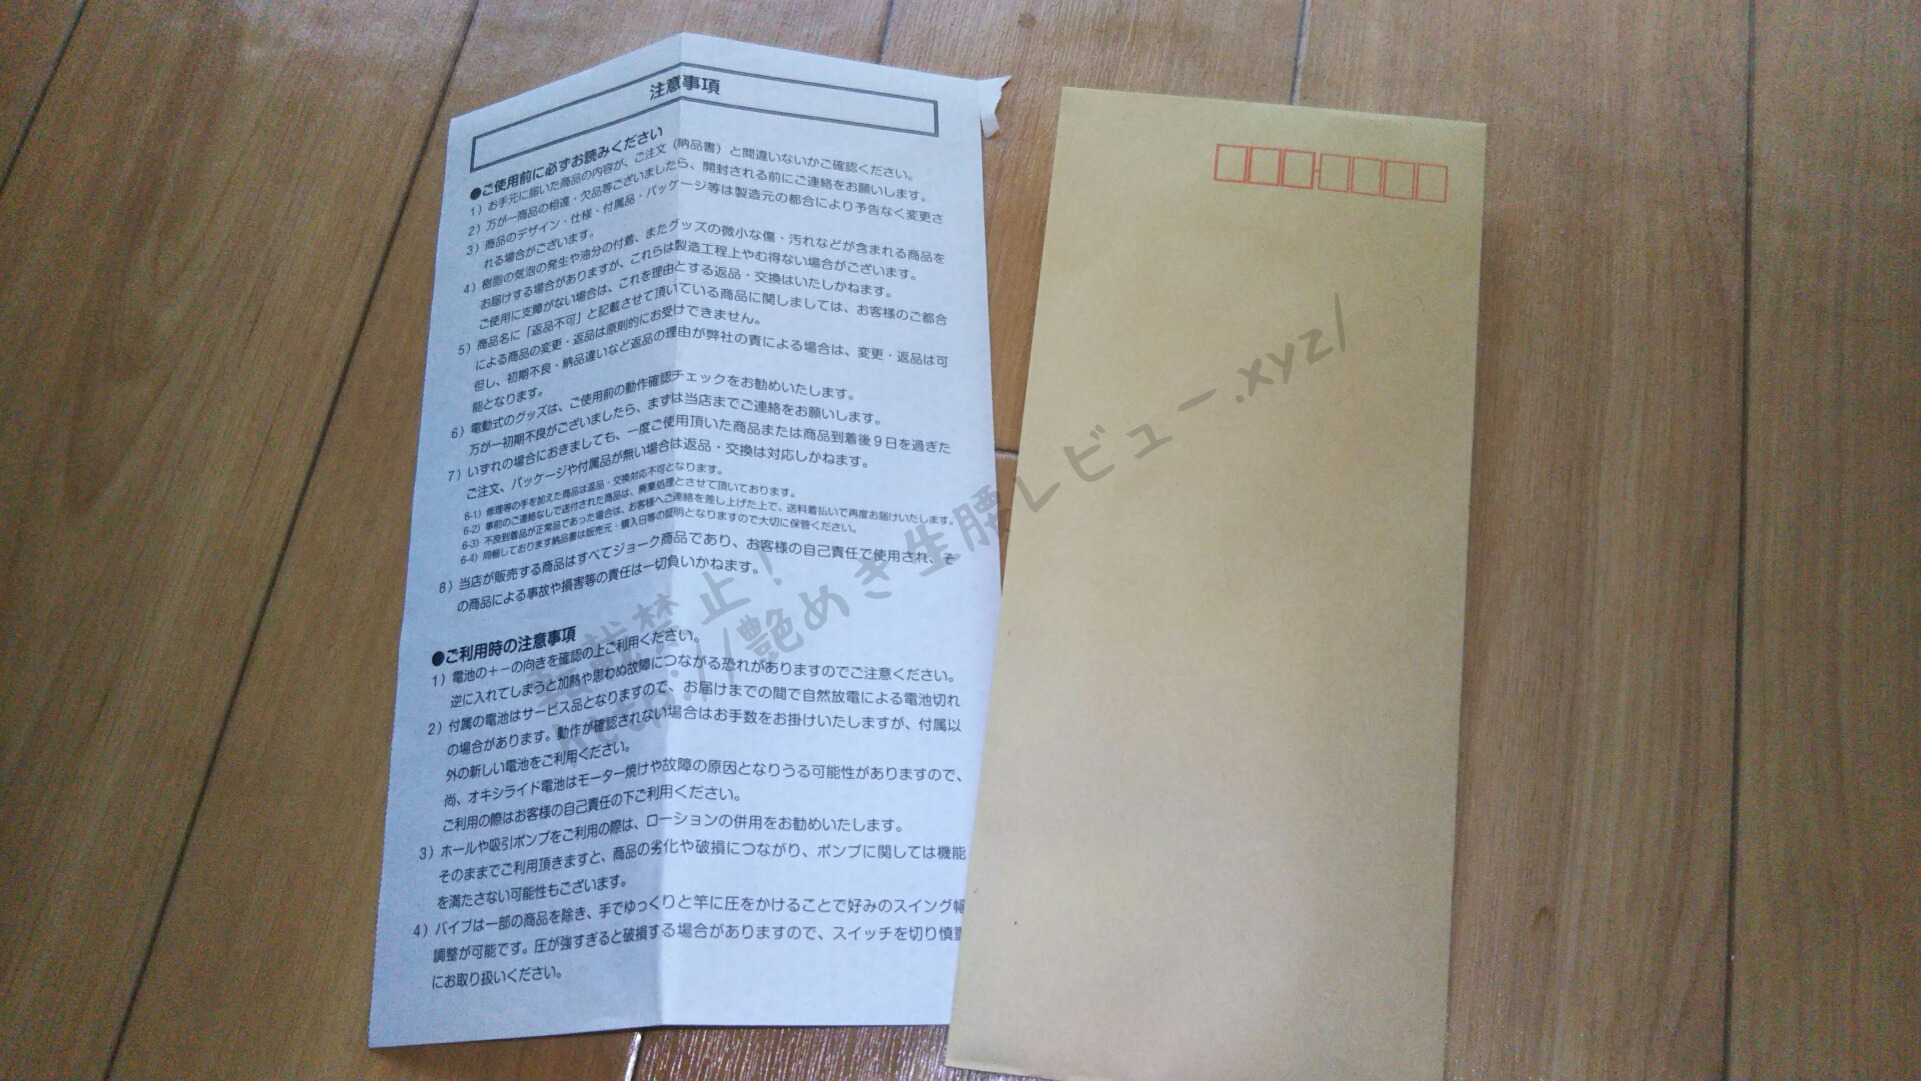 注意事項
●ご使用前に必ずお読みください
1）お手元に届いた商品の内容が、ご注文（納品書）と間違いないかご確認ください。
2）万が一商品の相違・欠品等ございましたら、開封される前にご連絡をお願いします。
3）商品のデザイン・仕様・付属品・パッケージ等は製造元の都合により予告なく変更さ
れる場合がございます。
4）樹脂の気泡の発生や油分の付着、またグッズの微小な傷・汚れなどが含まれる商品を
お届けする場合がありますが、これらは製造工程上やむ得ない場合がございます。
ご使用に支障がない場合は、これを理由とする返品・交換はいたしかねます。
5）商品名に「返品不可」と記載させて頂いている商品に関しましては、お客様のご都合
による商品の変更・返品は原則的にお受けできません。
但し、初期不良・納品違いなど返品の理由が弊社の責による場合は、変更・返品は可
能となります。
6）電動式のグッズは、ご使用前の動作確認チェックをお勧めいたします。
万が一初期不良がございましたら、まずは当店までご連絡をお願いします。
7）いずれの場合におきましても、一度ご使用頂いた商品または商品到着後９日を過ぎた
ご注文、パッケージや付属品が無い場合は返品・交換は対応しかねます。
6-1）修理等の手を加えた商品は返品・交換対応不可となります。
6-2）事前のご連絡なしで送付された商品は、廃棄処理とさせて頂いております。
6-3）不良到着品が正常品であった場合は、お客様へご連絡を差し上げた上で、送料着払いで再度お届けいたします。
6-4）同梱しております納品書は販売元・購入日等の証明となりますので大切に保管ください。
8）当店が販売する商品はすべてジョーク商品であり、お客様の自己責任で使用され、そ
の商品による事故や損害等の責任は一切負いかねます。
●ご利用時の注意事項
1）電池の＋－の向きを確認の上ご利用ください。
逆に入れてしまうと加熱や思わぬ故障につながる恐れがありますのでご注意ください。
2）付属の電池はサービス品となりますので、お届けまでの間で自然放電による電池切れ
の場合があります。動作が確認されない場合はお手数をお掛けいたしますが、付属以
外の新しい電池をご利用ください。
尚、オキシライド電池はモーター焼けや故障の原因となりうる可能性がありますので、
ご利用の際はお客様の自己責任の下ご利用ください。
3）ホールや吸引ポンプをご利用の際は、ローションの併用をお勧めいたします。
そのままでご利用頂きますと、商品の劣化や破損につながり、ポンプに関しては機能
を満たさない可能性もございます。
4）バイブは一部の商品を除き、手でゆっくりと竿に圧をかけることで好みのスイング幅
調整が可能です。圧が強すぎると破損する場合がありますので、スイッチを切り慎重
にお取り扱いください。
転載禁止！
http://艶めき生腰レビュー.xyz/